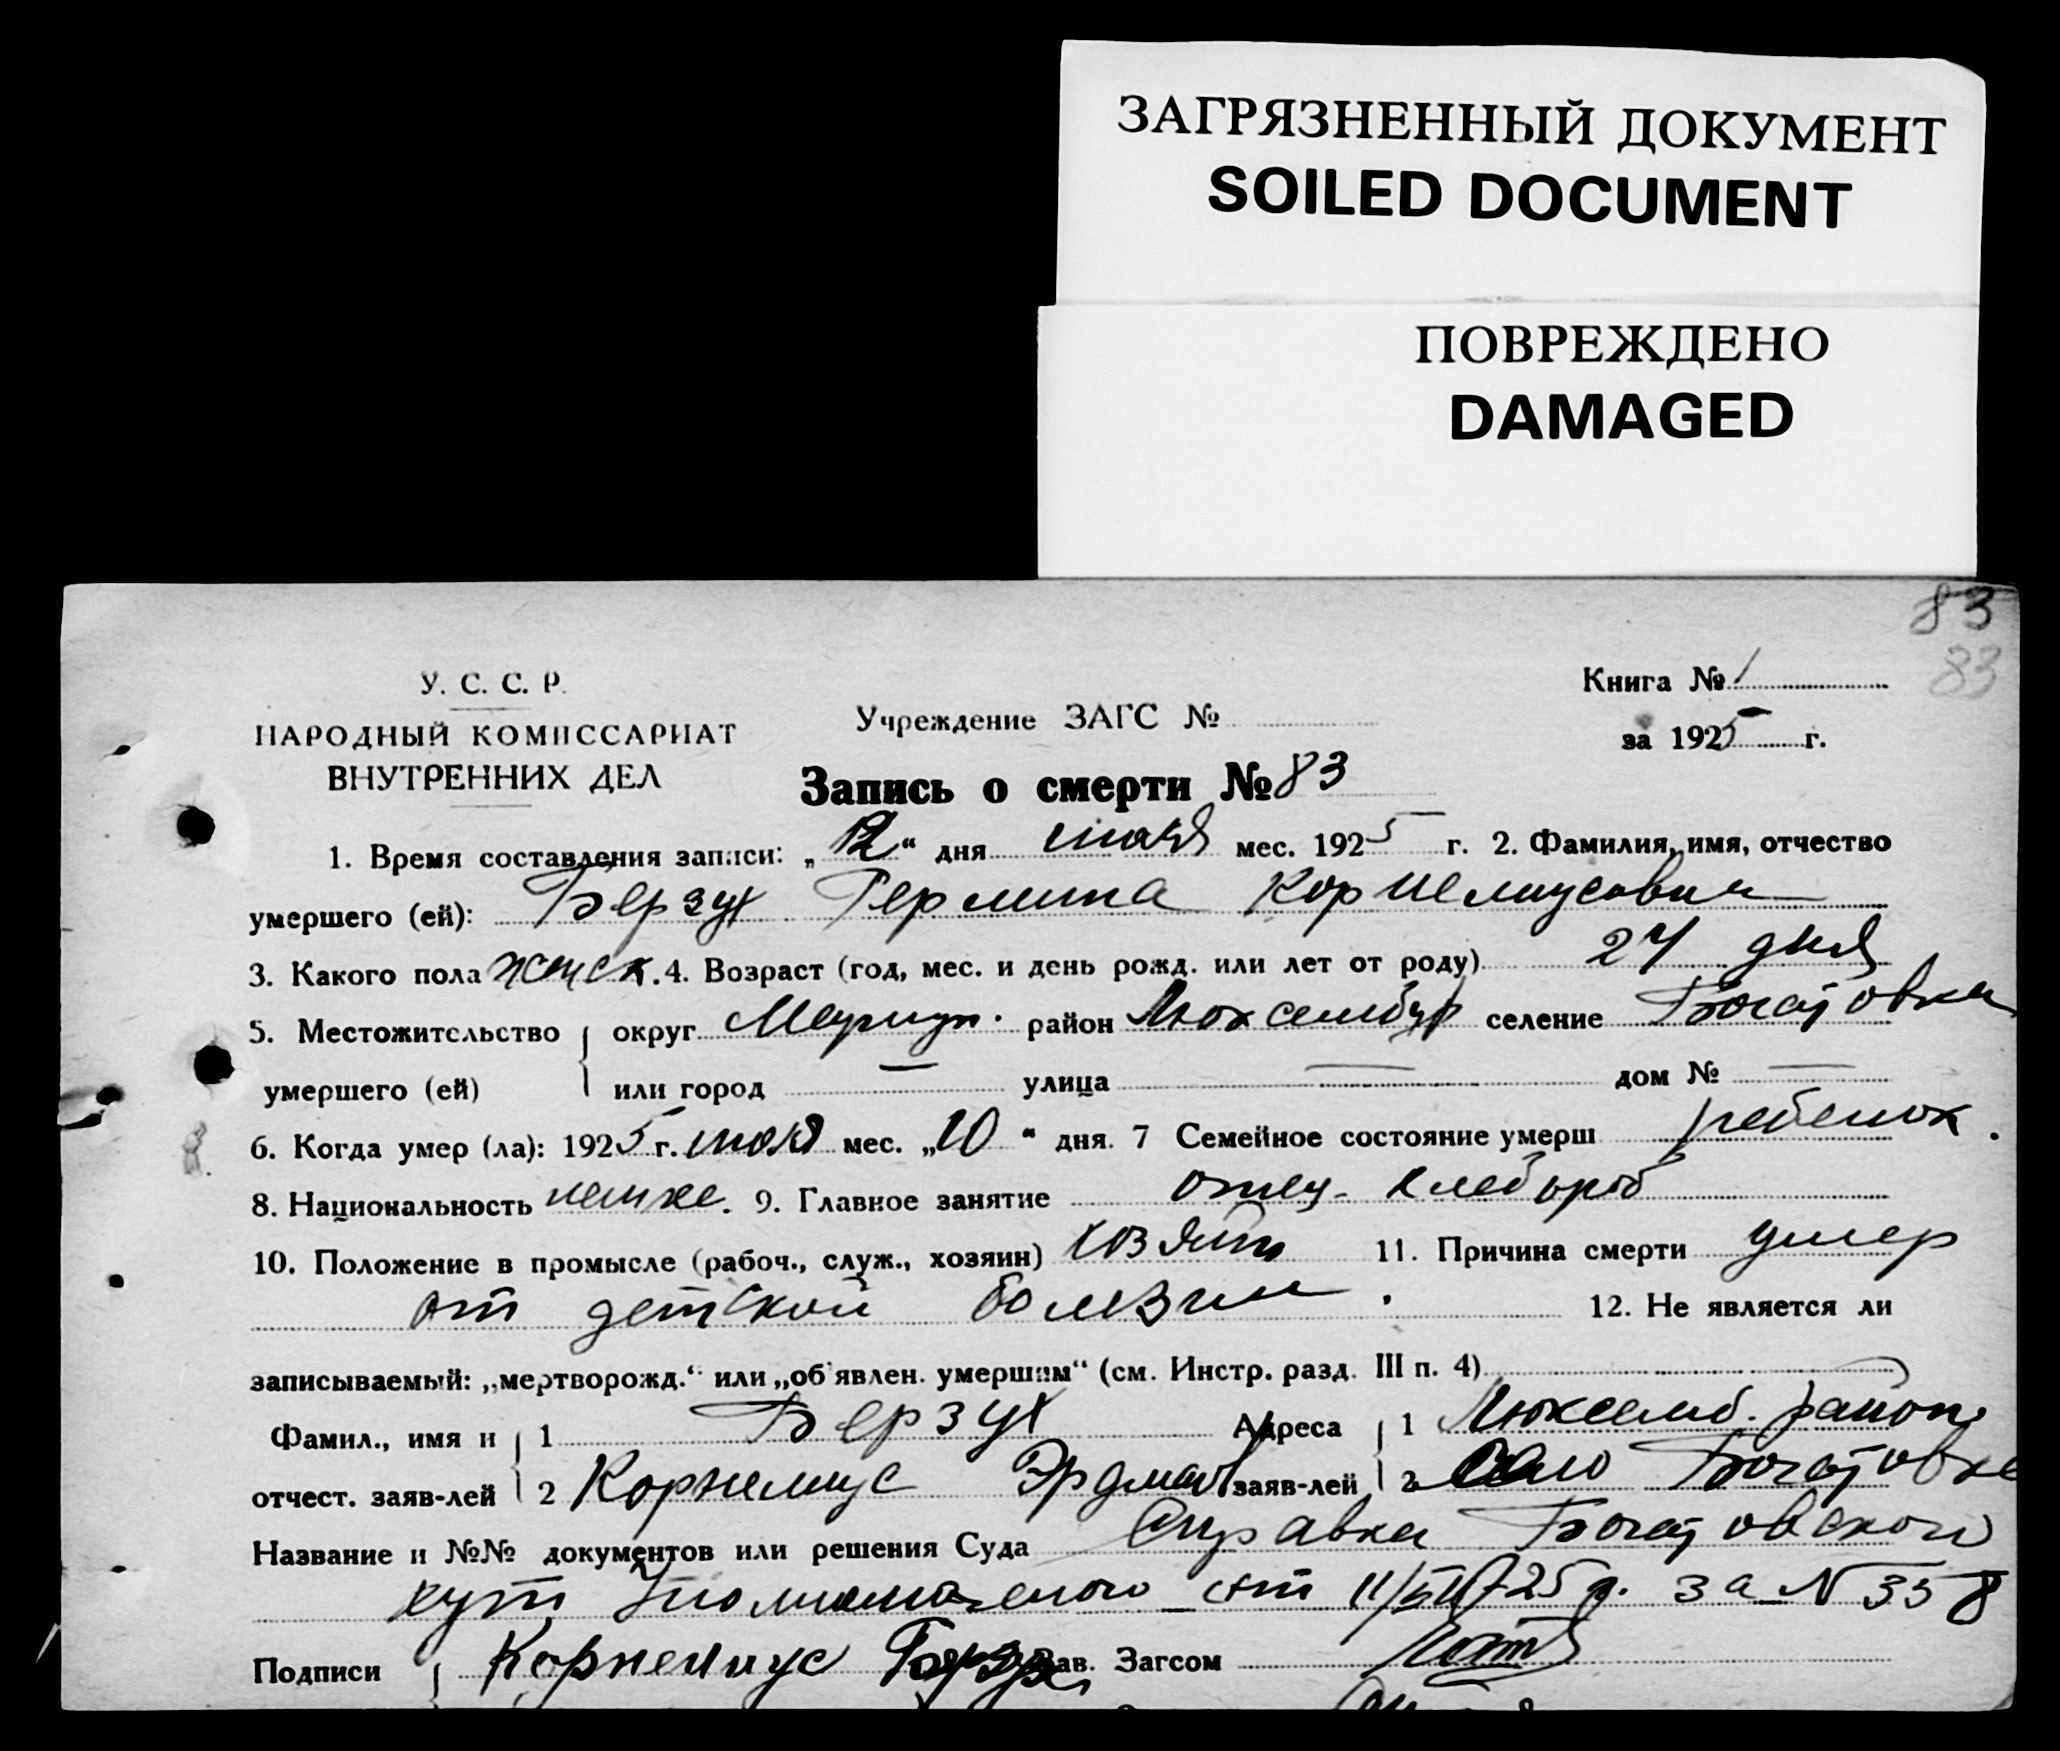 ЗАГРЯЗНЕННЫЙ ДОКУМЕНТ
SOILED DOCUMENT
ПОВРЕЖДЕНО
DAMAGED
83
83
У. С. С. Р.
НАРОДНЫЙ КОМИССАРИАТ
ВНУТРЕННИХ ДЕЛ
Учреждение ЗАГС №
Книга № 1
за 1925 г.
Запись о смерти № 83
1. Время составления записи: „12“ дня июля мес. 1925 г. 2. Фамилия, имя, отчество
умершего (ей): Берзух Гермина Корнелиусовна
3. Какого пола женск. 4. Возраст (год, мес. и день рожд. или лет от роду) 24 дня
5. Местожительство округ Мариуп. район Люксембур селение Богатовка
умершего (ей) или город — улица — дом № —
6. Когда умер (ла): 1925 г. июля мес. „10“ дня. 7 Семейное состояние умерш ребенок.
8. Национальность немке. 9. Главное занятие отец - хлебороб
10. Положение в промысле (рабоч., служ., хозяин) хозяин 11. Причина смерти умер
от детской болезни. 12. Не является ли
записываемый: „мертворожд.“ или „об'явлен. умершим“ (см. Инстр. разд. III п. 4)
Фамил., имя и 1 Берзух Адреса 1 Люксемб. район
отчест. заяв-лей 2 Корнелиус Эрдман заяв-лей 2 село Богатовке
Название и №№ документов или решения Суда Справка Богатовской
от 11/VII-25 г. за N 358
Подписи Корнелиус Берзух Зав. Загсом